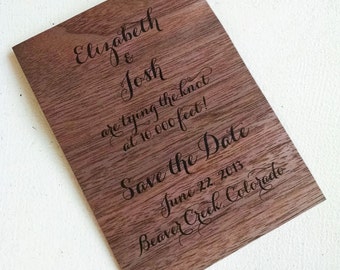 Elizabeth
&
Josh
are tying the knot
at 10 000 feet!
Save the Date
June 22. 2013
Beaver Creek Colorado